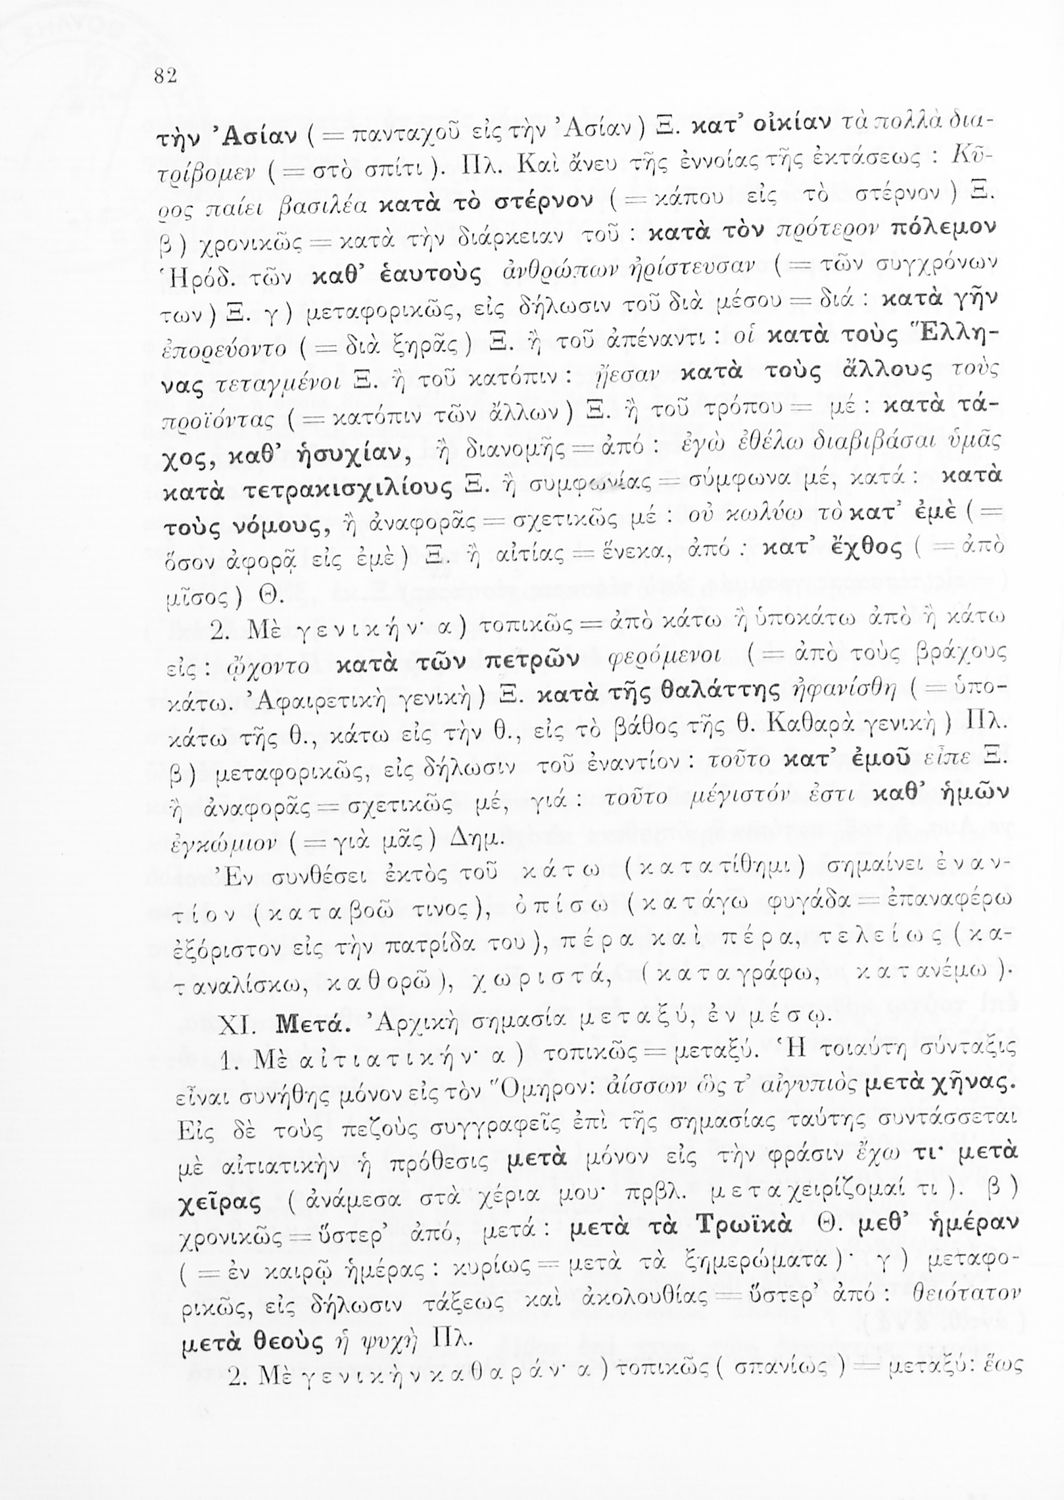 82
τὴν Ἀσίαν (= πανταχοῦ εἰς τὴν Ἀσίαν) Ξ. κατ’ οἰκίαν τὰ πολλὰ δια-
τρίβομεν (= στὸ σπίτι). Πλ. Καὶ ἄνευ τῆς ἐννοίας τῆς ἐκτάσεως : Κῦ-
ρος παίει βασιλέα κατὰ τὸ στέρνον (= κάπου εἰς τὸ στέρνον) Ξ.
β) χρονικῶς = κατὰ τὴν διάρκειαν τοῦ : κατὰ τὸν πρότερον πόλεμον
Ἡρόδ. τῶν καθ’ ἑαυτοὺς ἀνθρώπων ἠρίστευσαν (= τῶν συγχρόνων
των) Ξ. γ) μεταφορικῶς, εἰς δήλωσιν τοῦ διὰ μέσου = διά : κατὰ γῆν
ἐπορεύοντο (= διὰ ξηρᾶς) Ξ. ἢ τοῦ ἀπέναντι : οἱ κατὰ τοὺς Ἕλλη-
νας τεταγμένοι Ξ. ἢ τοῦ κατόπιν : ᾔεσαν κατὰ τοὺς ἄλλους τοὺς
προϊόντας (= κατόπιν τῶν ἄλλων) Ξ. ἢ τοῦ τρόπου = μέ : κατὰ τά-
χος, καθ’ ἡσυχίαν, ἢ διανομῆς = ἀπό : ἐγὼ ἐθέλω διαβιβάσαι ὑμᾶς
κατὰ τετρακισχιλίους Ξ. ἢ συμφωνίας = σύμφωνα μέ, κατά : κατὰ
τοὺς νόμους, ἢ ἀναφορᾶς = σχετικῶς μέ : οὐ κωλύω τὸ κατ’ ἐμὲ (=
ὅσον ἀφορᾷ εἰς ἐμὲ) Ξ. ἢ αἰτίας = ἕνεκα, ἀπό : κατ’ ἔχθος (= ἀπὸ
μῖσος) Θ.
2. Μὲ γενικήν· α) τοπικῶς = ἀπὸ κάτω ἢ ὑποκάτω ἀπὸ ἢ κάτω
εἰς : ᾤχοντο κατὰ τῶν πετρῶν φερόμενοι (= ἀπὸ τοὺς βράχους
κάτω. Ἀφαιρετικὴ γενικὴ) Ξ. κατὰ τῆς θαλάττης ἠφανίσθη (= ὑπο-
κάτω τῆς θ., κάτω εἰς τὴν θ., εἰς τὸ βάθος τῆς θ. Καθαρὰ γενικὴ) Πλ.
β) μεταφορικῶς, εἰς δήλωσιν τοῦ ἐναντίον : τοῦτο κατ’ ἐμοῦ εἶπε Ξ.
ἢ ἀναφορᾶς = σχετικῶς μέ, γιά : τοῦτο μέγιστόν ἐστι καθ’ ἡμῶν
ἐγκώμιον (= γιὰ μᾶς) Δημ.
Ἐν συνθέσει ἐκτὸς τοῦ κάτω (κατατίθημι) σημαίνει ἐναν-
τίον (καταβοῶ τινος), ὀπίσω (κατάγω φυγάδα = ἐπαναφέρω
ἐξόριστον εἰς τὴν πατρίδα του), πέρα καὶ πέρα, τελείως (κα-
ταναλίσκω, καθορῶ), χωριστά, (καταγράφω, κατανέμω).
XI. Μετά. Ἀρχικὴ σημασία μεταξύ, ἐν μέσῳ.
1. Μὲ αἰτιατικήν· α) τοπικῶς = μεταξύ. Ἡ τοιαύτη σύνταξις
εἶναι συνήθης μόνον εἰς τὸν Ὅμηρον: ἀίσσων ὥς τ’ αἰγυπιὸς μετὰ χῆνας.
Εἰς δὲ τοὺς πεζοὺς συγγραφεῖς ἐπὶ τῆς σημασίας ταύτης συντάσσεται
μὲ αἰτιατικὴν ἡ πρόθεσις μετὰ μόνον εἰς τὴν φράσιν ἔχω τι· μετὰ
χεῖρας (ἀνάμεσα στὰ χέρια μου· πρβλ. μεταχειρίζομαί τι). β)
χρονικῶς = ὕστερ’ ἀπό, μετά : μετὰ τὰ Τρωϊκὰ Θ. μεθ’ ἡμέραν
(= ἐν καιρῷ ἡμέρας : κυρίως = μετὰ τὰ ξημερώματα)· γ) μεταφο-
ρικῶς, εἰς δήλωσιν τάξεως καὶ ἀκολουθίας = ὕστερ’ ἀπό : θειότατον
μετὰ θεοὺς ἡ ψυχὴ Πλ.
2. Μὲ γενικὴν καθαράν· α) τοπικῶς (σπανίως) = μεταξύ: ἕως